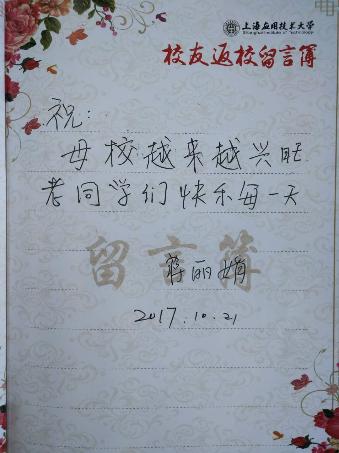 上海应用技术大学
Shanghai Institute of Technology
校友返校留言簿
祝：
母校越来越兴旺
老同学们快乐每一天
留言簿
蒋丽娟
2017.10.21